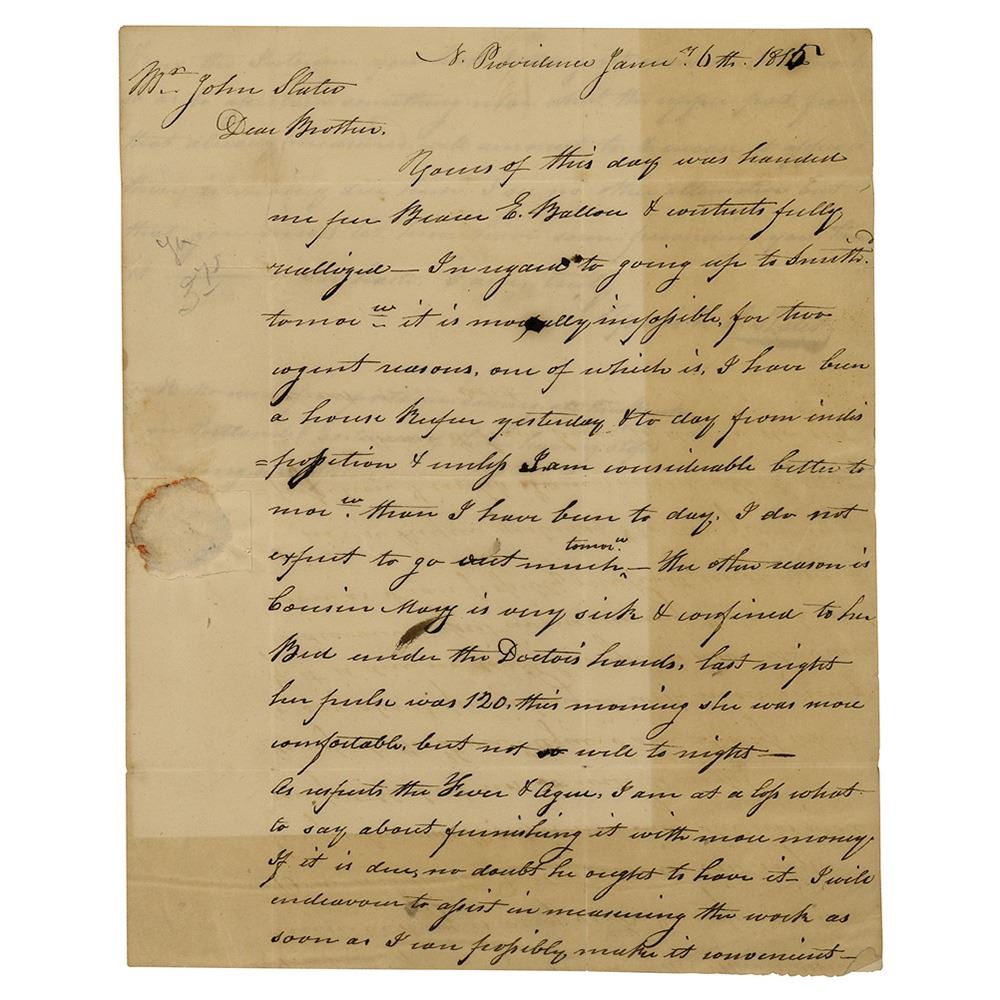 N. Providence Januy 6th. 1815
Mr. John Slater
Dear Brother.
Yours of this day was handed
me per Bearer E. Ballou & contents fully
realized — In regard to going up to Smithd.
tomorw it is morally impossible, for two
cogent reasons, one of which is, I have been
a house Keeper yesterday & to day from indis
=position & unless I am considerable better to
morw. than I have been to day. I do not
expect to go out much tomorw. — The other reason is
Cousin Mary is very sick & confined to her
Bed under the Doctors hands, last night
her pulse was 120, this morning she was more
comfortable, but not so well to night —
As respects the Fever & Ague, I am at a loss what
to say about furnishing it with more money
If it is due, no doubt he ought to have it — I will
endeavour to assist in measuring the work as
soon as I can possibly make it convenient —